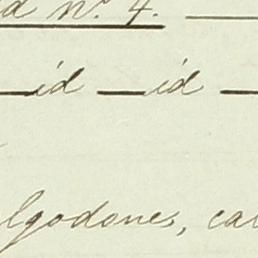 id nº. 4.
id — id
lgodones, ca